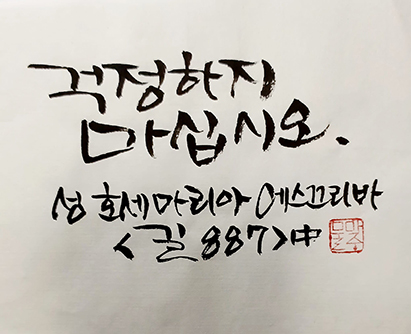 걱정하지
마십시오.
성 호세마리아 에스끄리바
<길 887>中